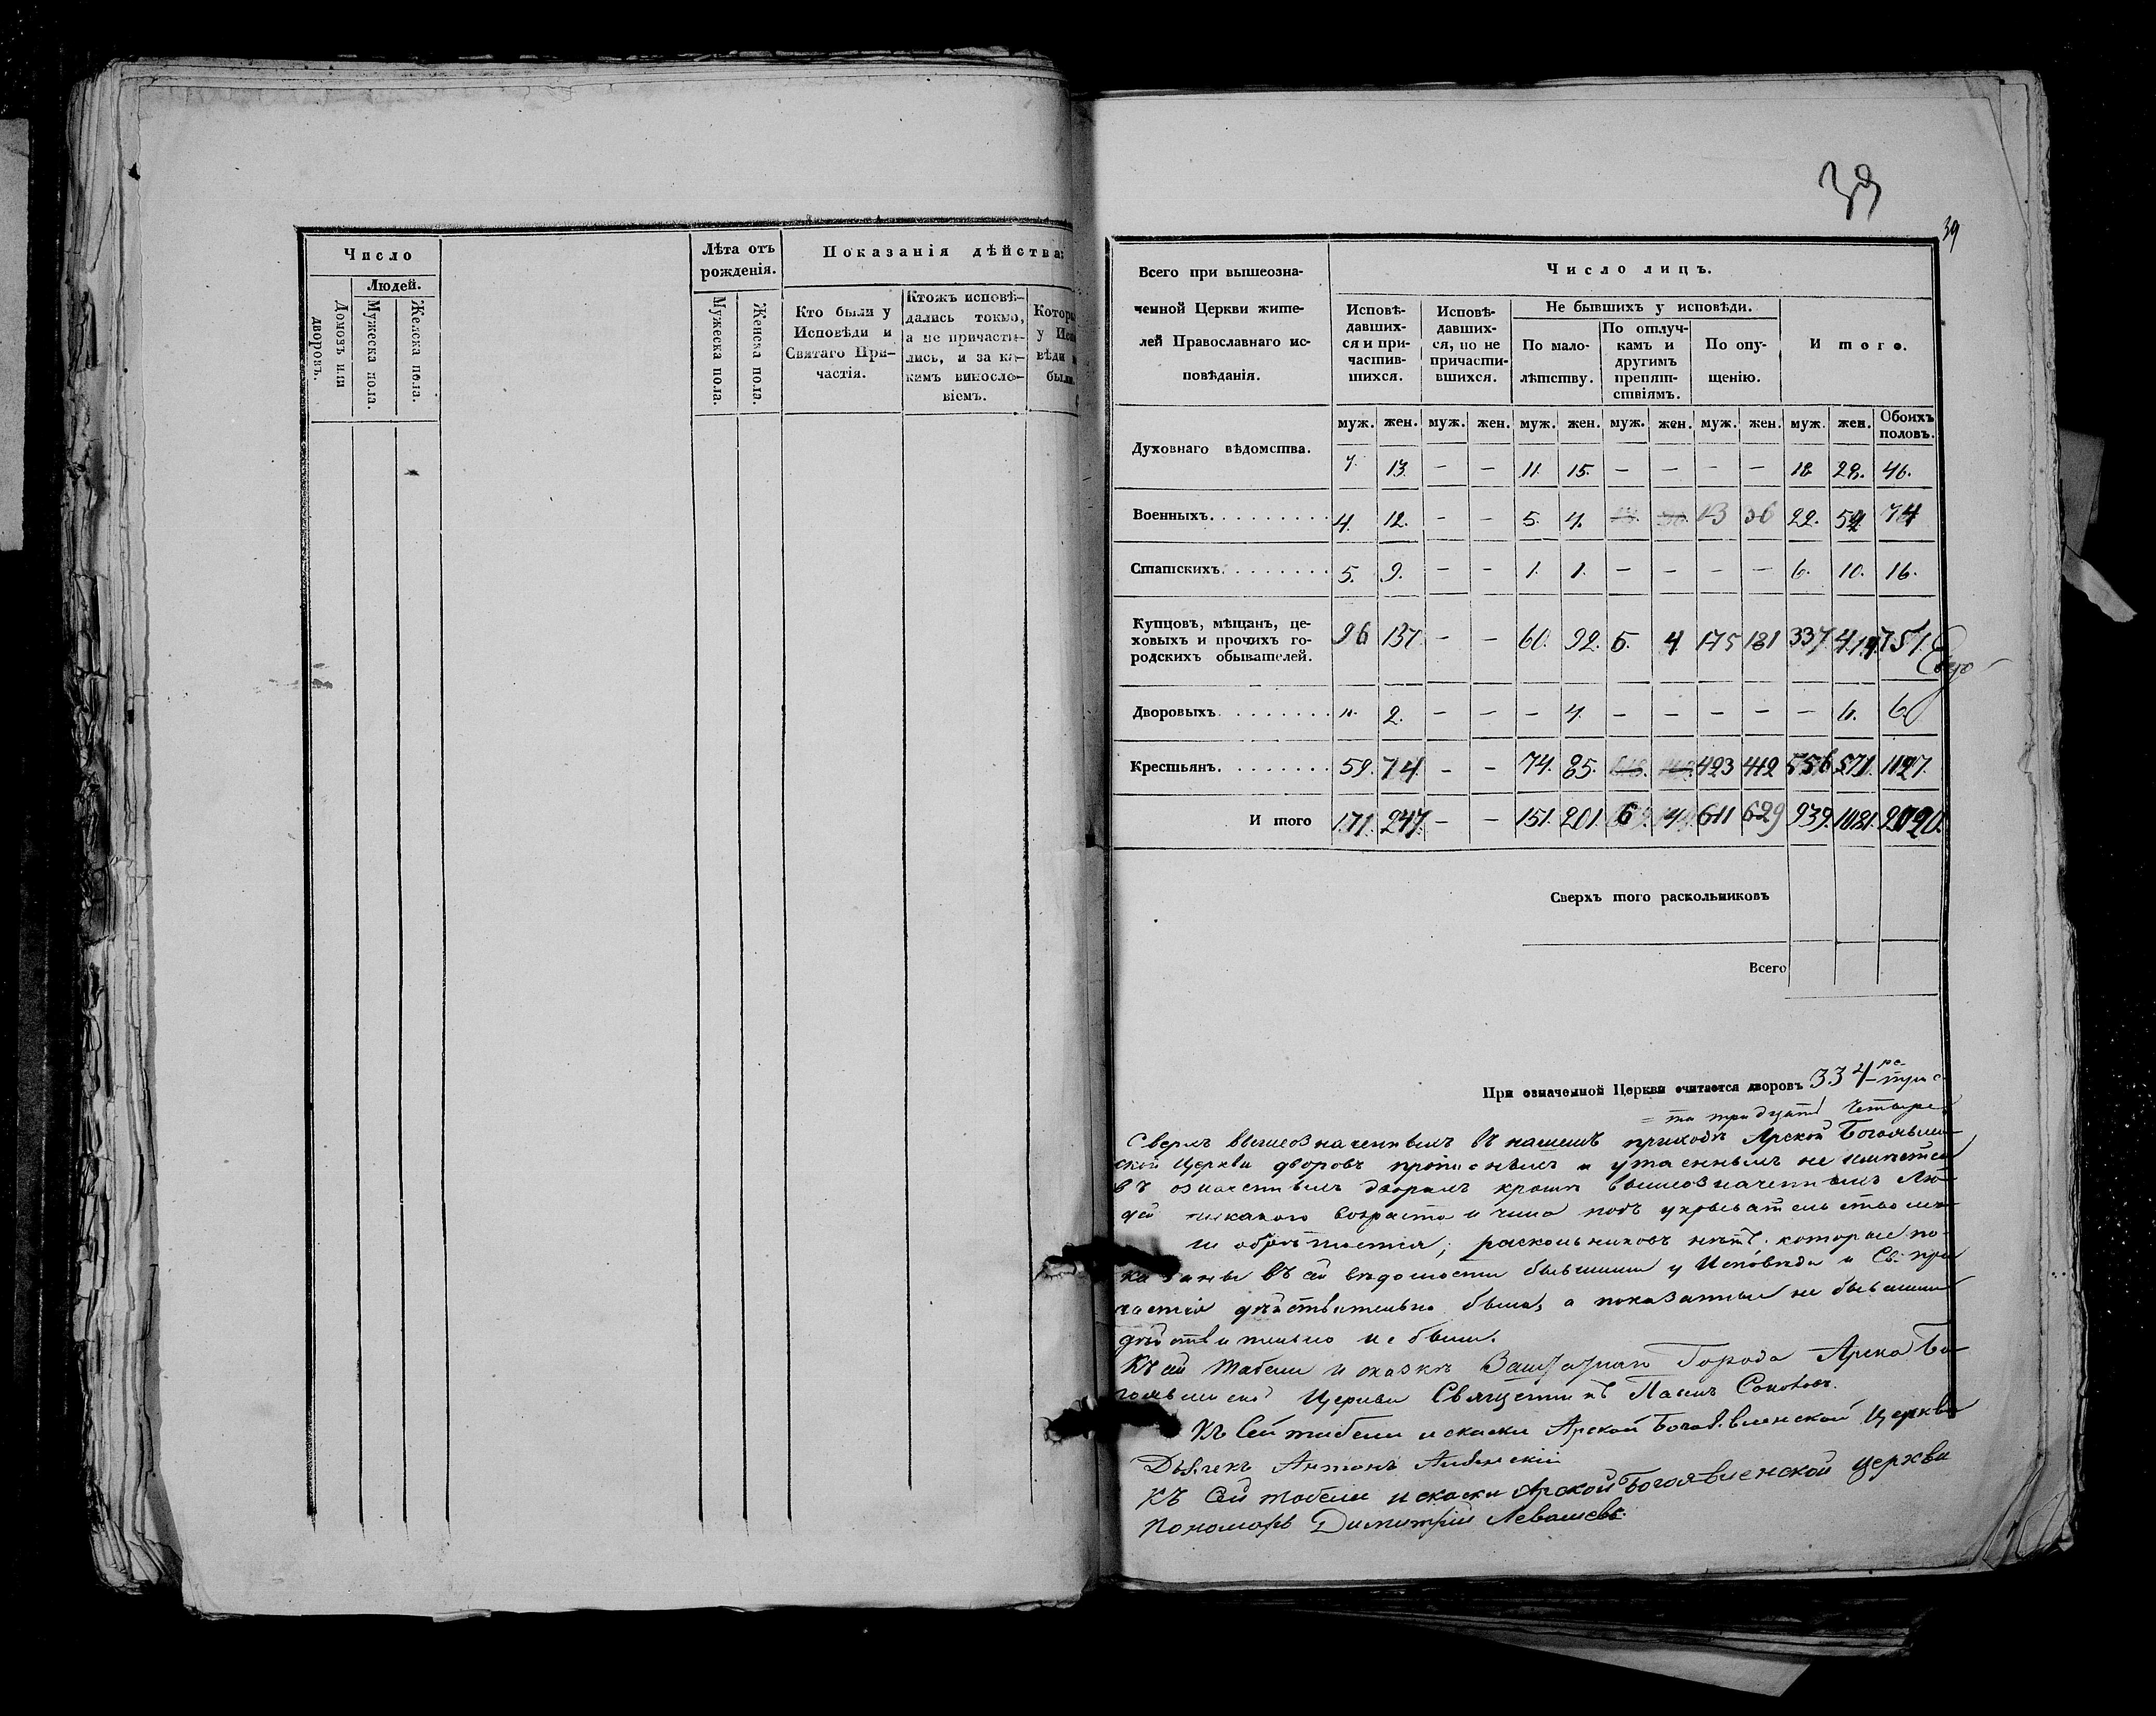 Число
Людей.
Домовъ или дворовъ.
Мужеска пола.
Женска пола.
Лѣта отъ рожденія.
Мужеска пола.
Женска пола.
Показанія дѣйства:
Кто были у
Исповѣди и
Святаго При-
частія.
Ктожъ исповѣ-
дались токмо,
а не причасти-
лись, и за ка-
кимъ винословіемъ.
Которы
у Испо
вѣди
были
39
39
Всего при вышеозна-
ченной Церкви жите-
лей Православнаго ис-
повѣданія.
Число лицъ.
Исповѣ-
давших-
ся и при-
частив-
шихся.
Исповѣ-
давших-
ся, но не
причасти-
вшихся.
Не бывшихъ у исповѣди.
По мало-
лѣтству.
По отлуч-
камъ и
другимъ
препят-
ствіямъ.
По опу-
щенію.
Итого.
муж. жен. муж. жен. муж. жен. муж. жен. муж. жен. муж. жен. Обоихъ половъ.
Духовнаго вѣдомства. 7. 13. — — 11. 15. — — — — 18. 28. 46.
Военныхъ. 4. 12. — — 5. 4. 13 36 22. 52 74
Статскихъ. 5. 9. — — 1. 1. — — — — 6. 10. 16.
Купцовъ, мѣщанъ, це-
ховыхъ и прочихъ го-
родскихъ обывателей. 96 137. — — 60. 92. 6. 4 175 181 337. 414. 751.
Дворовыхъ. „ 2. — — — 4. — — — — — 6. 6
Крестьянъ. 59. 74 — — 74. 85. 423 412 556 571. 1127.
И того 171. 247. — — 151. 201. 6 4. 611 629 939. 1081. 2020.
Сверхъ того раскольниковъ
Всего
При означенной Церкви считается дворовъ 334 ре трис
= та тридцать четыре
Сверхъ вышеозначенныхъ въ нашемъ приходѣ Арской Богоявлен-
ской Церкви дворовъ прописныхъ и утаенныхъ не имѣется
въ означенныхъ дворахъ кромѣ вышеозначенныхъ Лю-
дей никакого возраста и чина подъ укрывательствомъ
не обрѣтается; раскольниковъ нѣтъ. которые по-
казаны въ сей вѣдомости бывшими у Исповѣди и Св. При
частія дѣйствительно были, а показанные не бывшими
дѣйствительно не были.
Къ сей табели и сказкѣ Города Арска Бо-
гоявленской Церкви Священникъ Соколовъ.
Къ Сей табели и скаски Арской Богоявленской Церкви
Дьячекъ Антонъ
Къ Сей табели и скаски Арской Богоявленской церкви
Пономарь Димитрій Левашевъ.